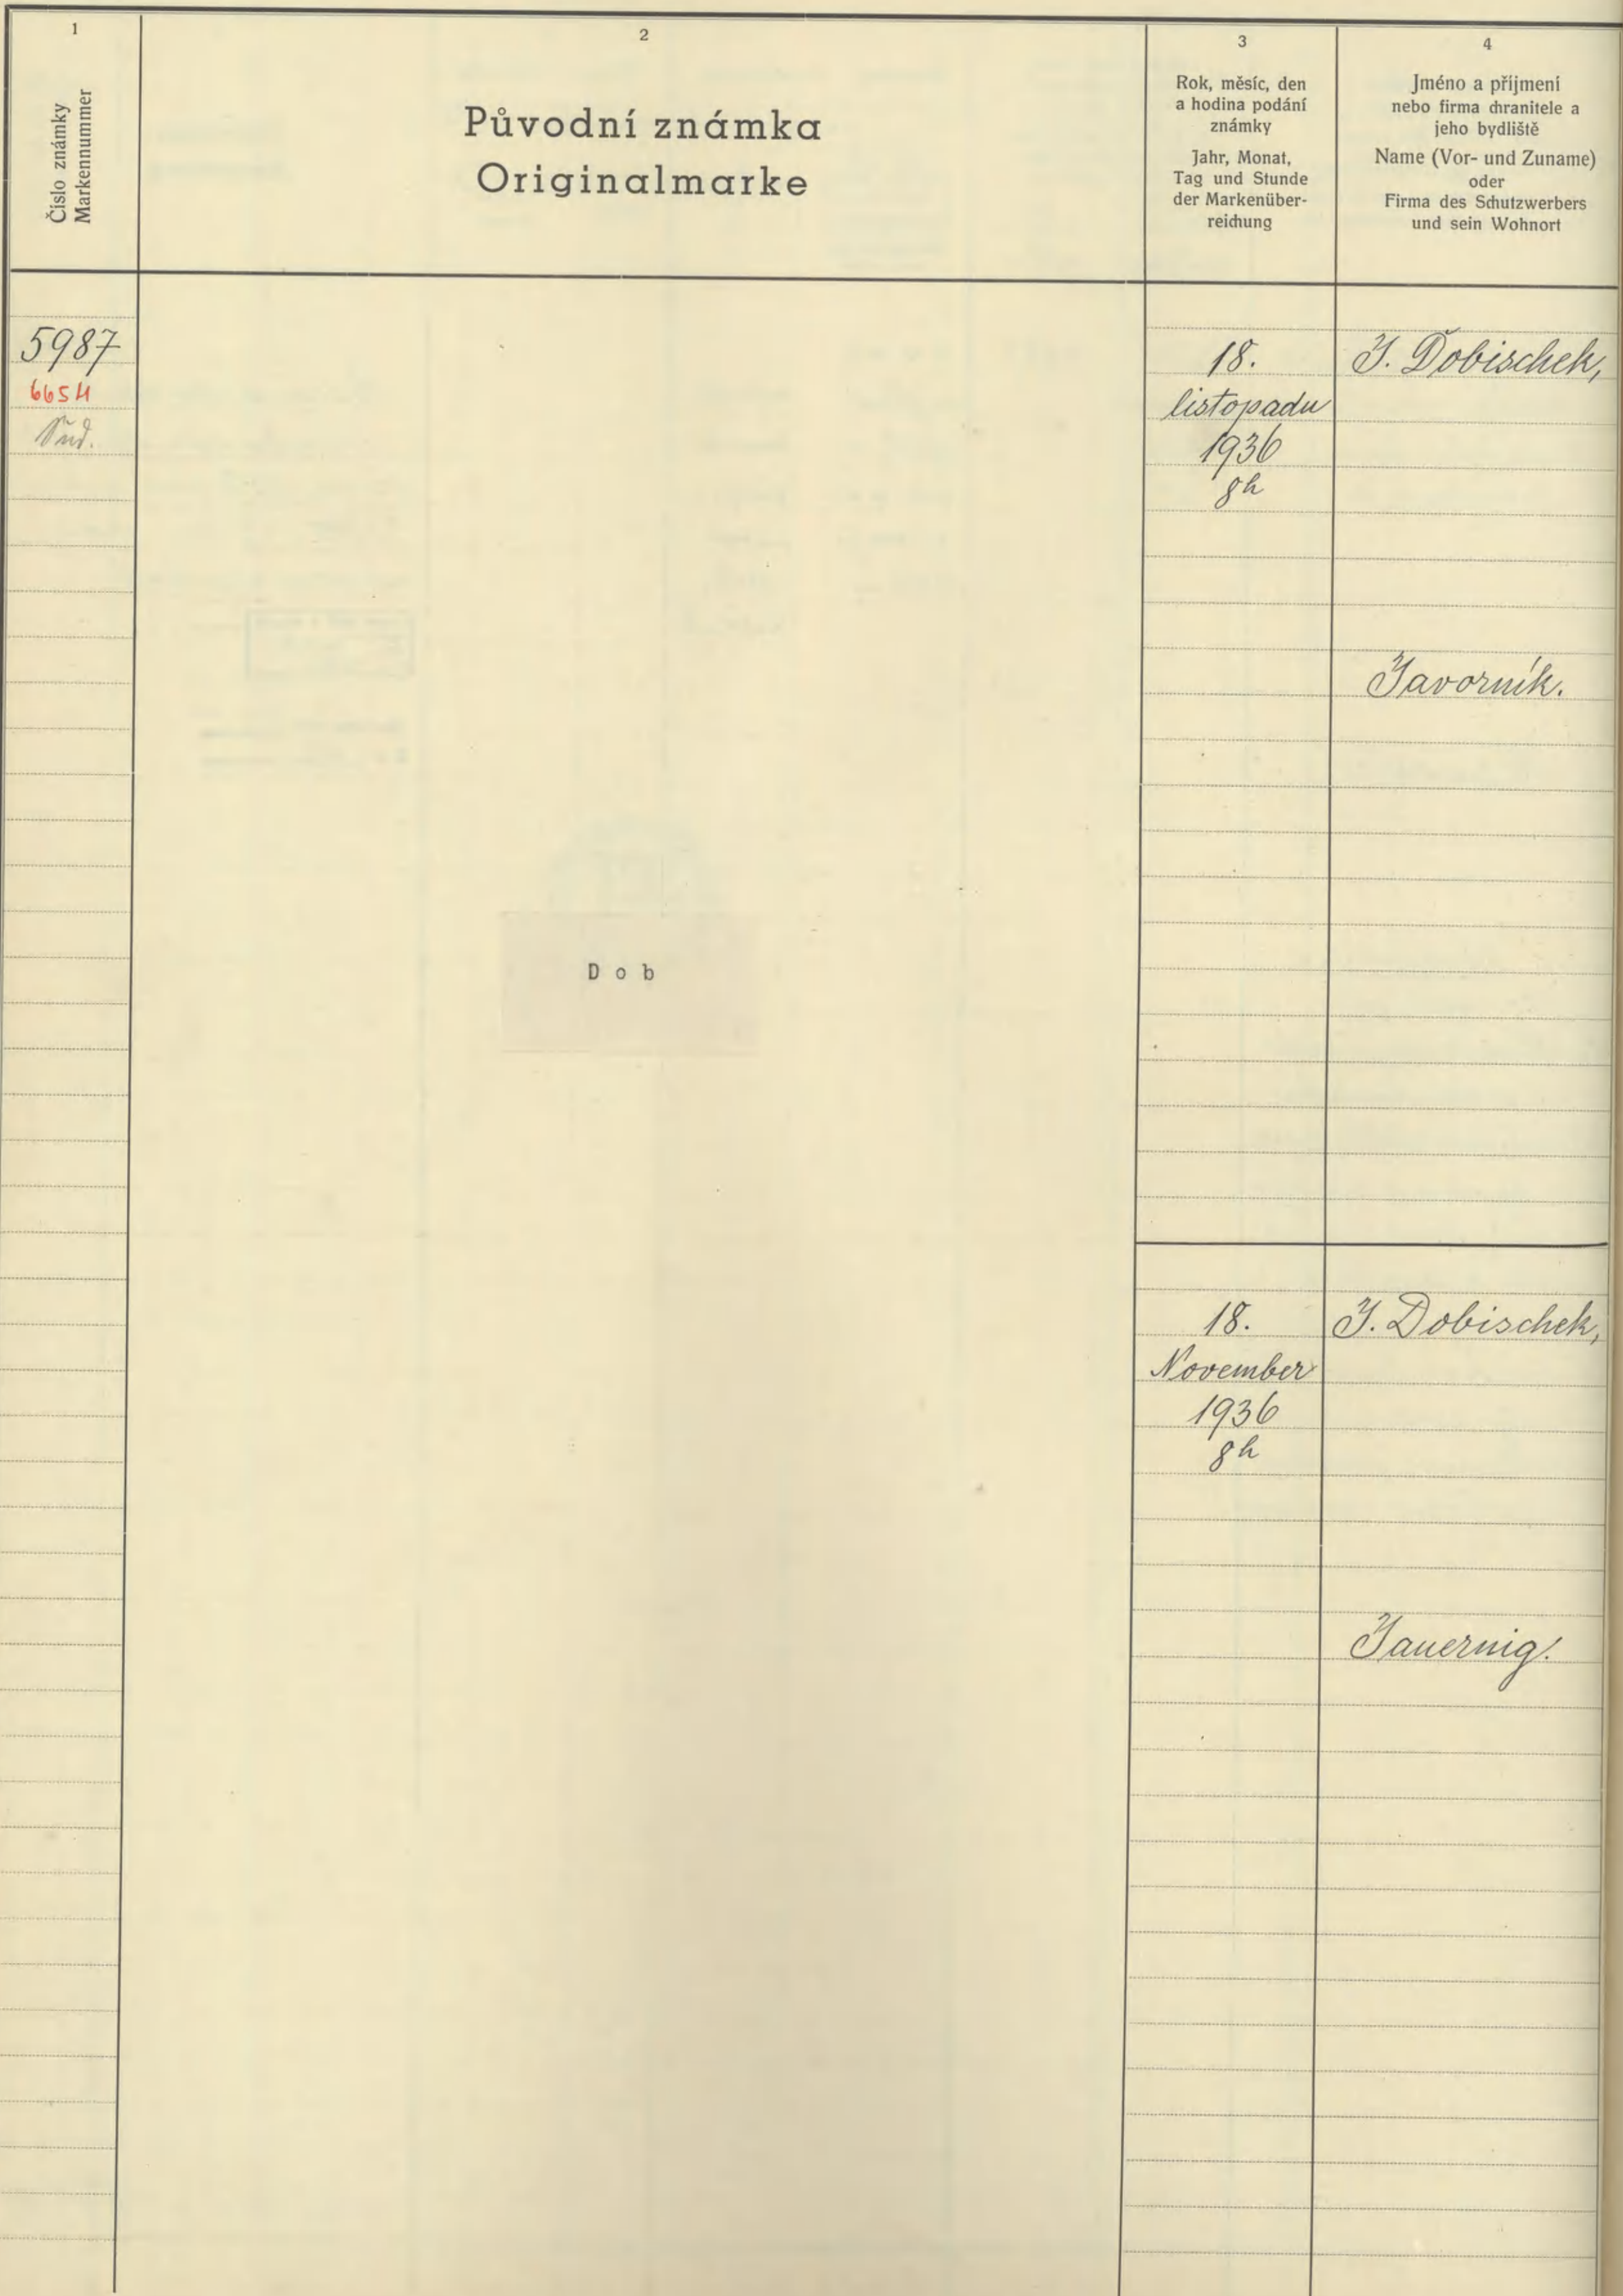 1
Číslo známky
Markennummer
2
Původní známka
Originalmarke
3
Rok, měsíc, den
a hodina podání
známky
Jahr, Monat,
Tag und Stunde
der Markenüber-
reichung
4
Jméno a příjmení
nebo firma chranitele a
jeho bydliště
Name (Vor- und Zuname)
oder
Firma des Schutzwerbers
und sein Wohnort
5987
6654
Sud.
18.
listopadu
1936
8h
J. Dobischek,
Javorník.
Dob
18.
November
1936
8h
J. Dobischek,
Jauernig.